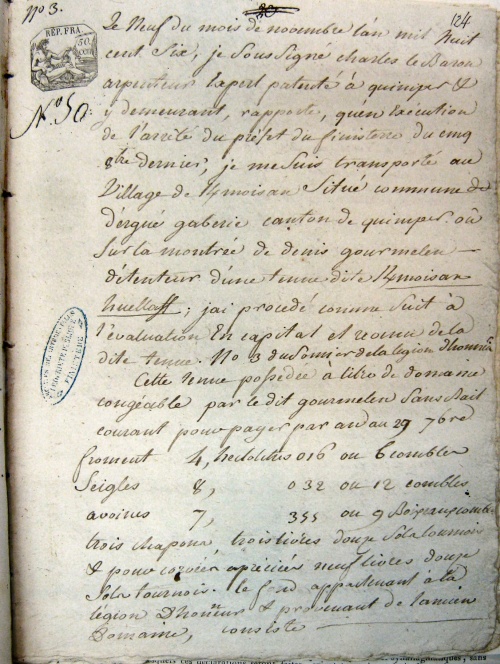 N.º 3.
124
RÉP. FRA.
50 CEN
N.º 50
Le Neuf du mois de novembre l'an mil huit
cent Six, je Soussigné charles le Baron
arpenteur Expert patenté à quimper &
y demeurant, rapporte, qu'en Exécution
de l'arrêté du préfet du finisterre du cinq
8bre dernier, je me suis transporté au
Village de K4moisan Situé commune de
d'ergué gaberic canton de quimper où
Sur la montrée de denis gourmelen
détenteur d'une tenue dite K4moisan
huellaff; jai procédé comme Suit à
l'évaluation En capital et revenu de la
dite tenue. No 3 du Somier de la légion d'honneur
Cette tenue possédée à titre de domaine
congéable par le dit gourmelen Sans bail
courant pour payer par an au 29 7bre
froment 4, hectolitres 016 ou 6 combles
Seigles 8, 032 ou 12 combles
avoines 7, 355 ou 9 Boiseaux combles
trois chapons, trois livres douze Sols tournois
& pour corvées apréciés neuf livres douze
Sols tournois. le fond appartenant à la
légion d'honneur & provenant de l'ancien
Domaine, consiste
FINISTÈRE